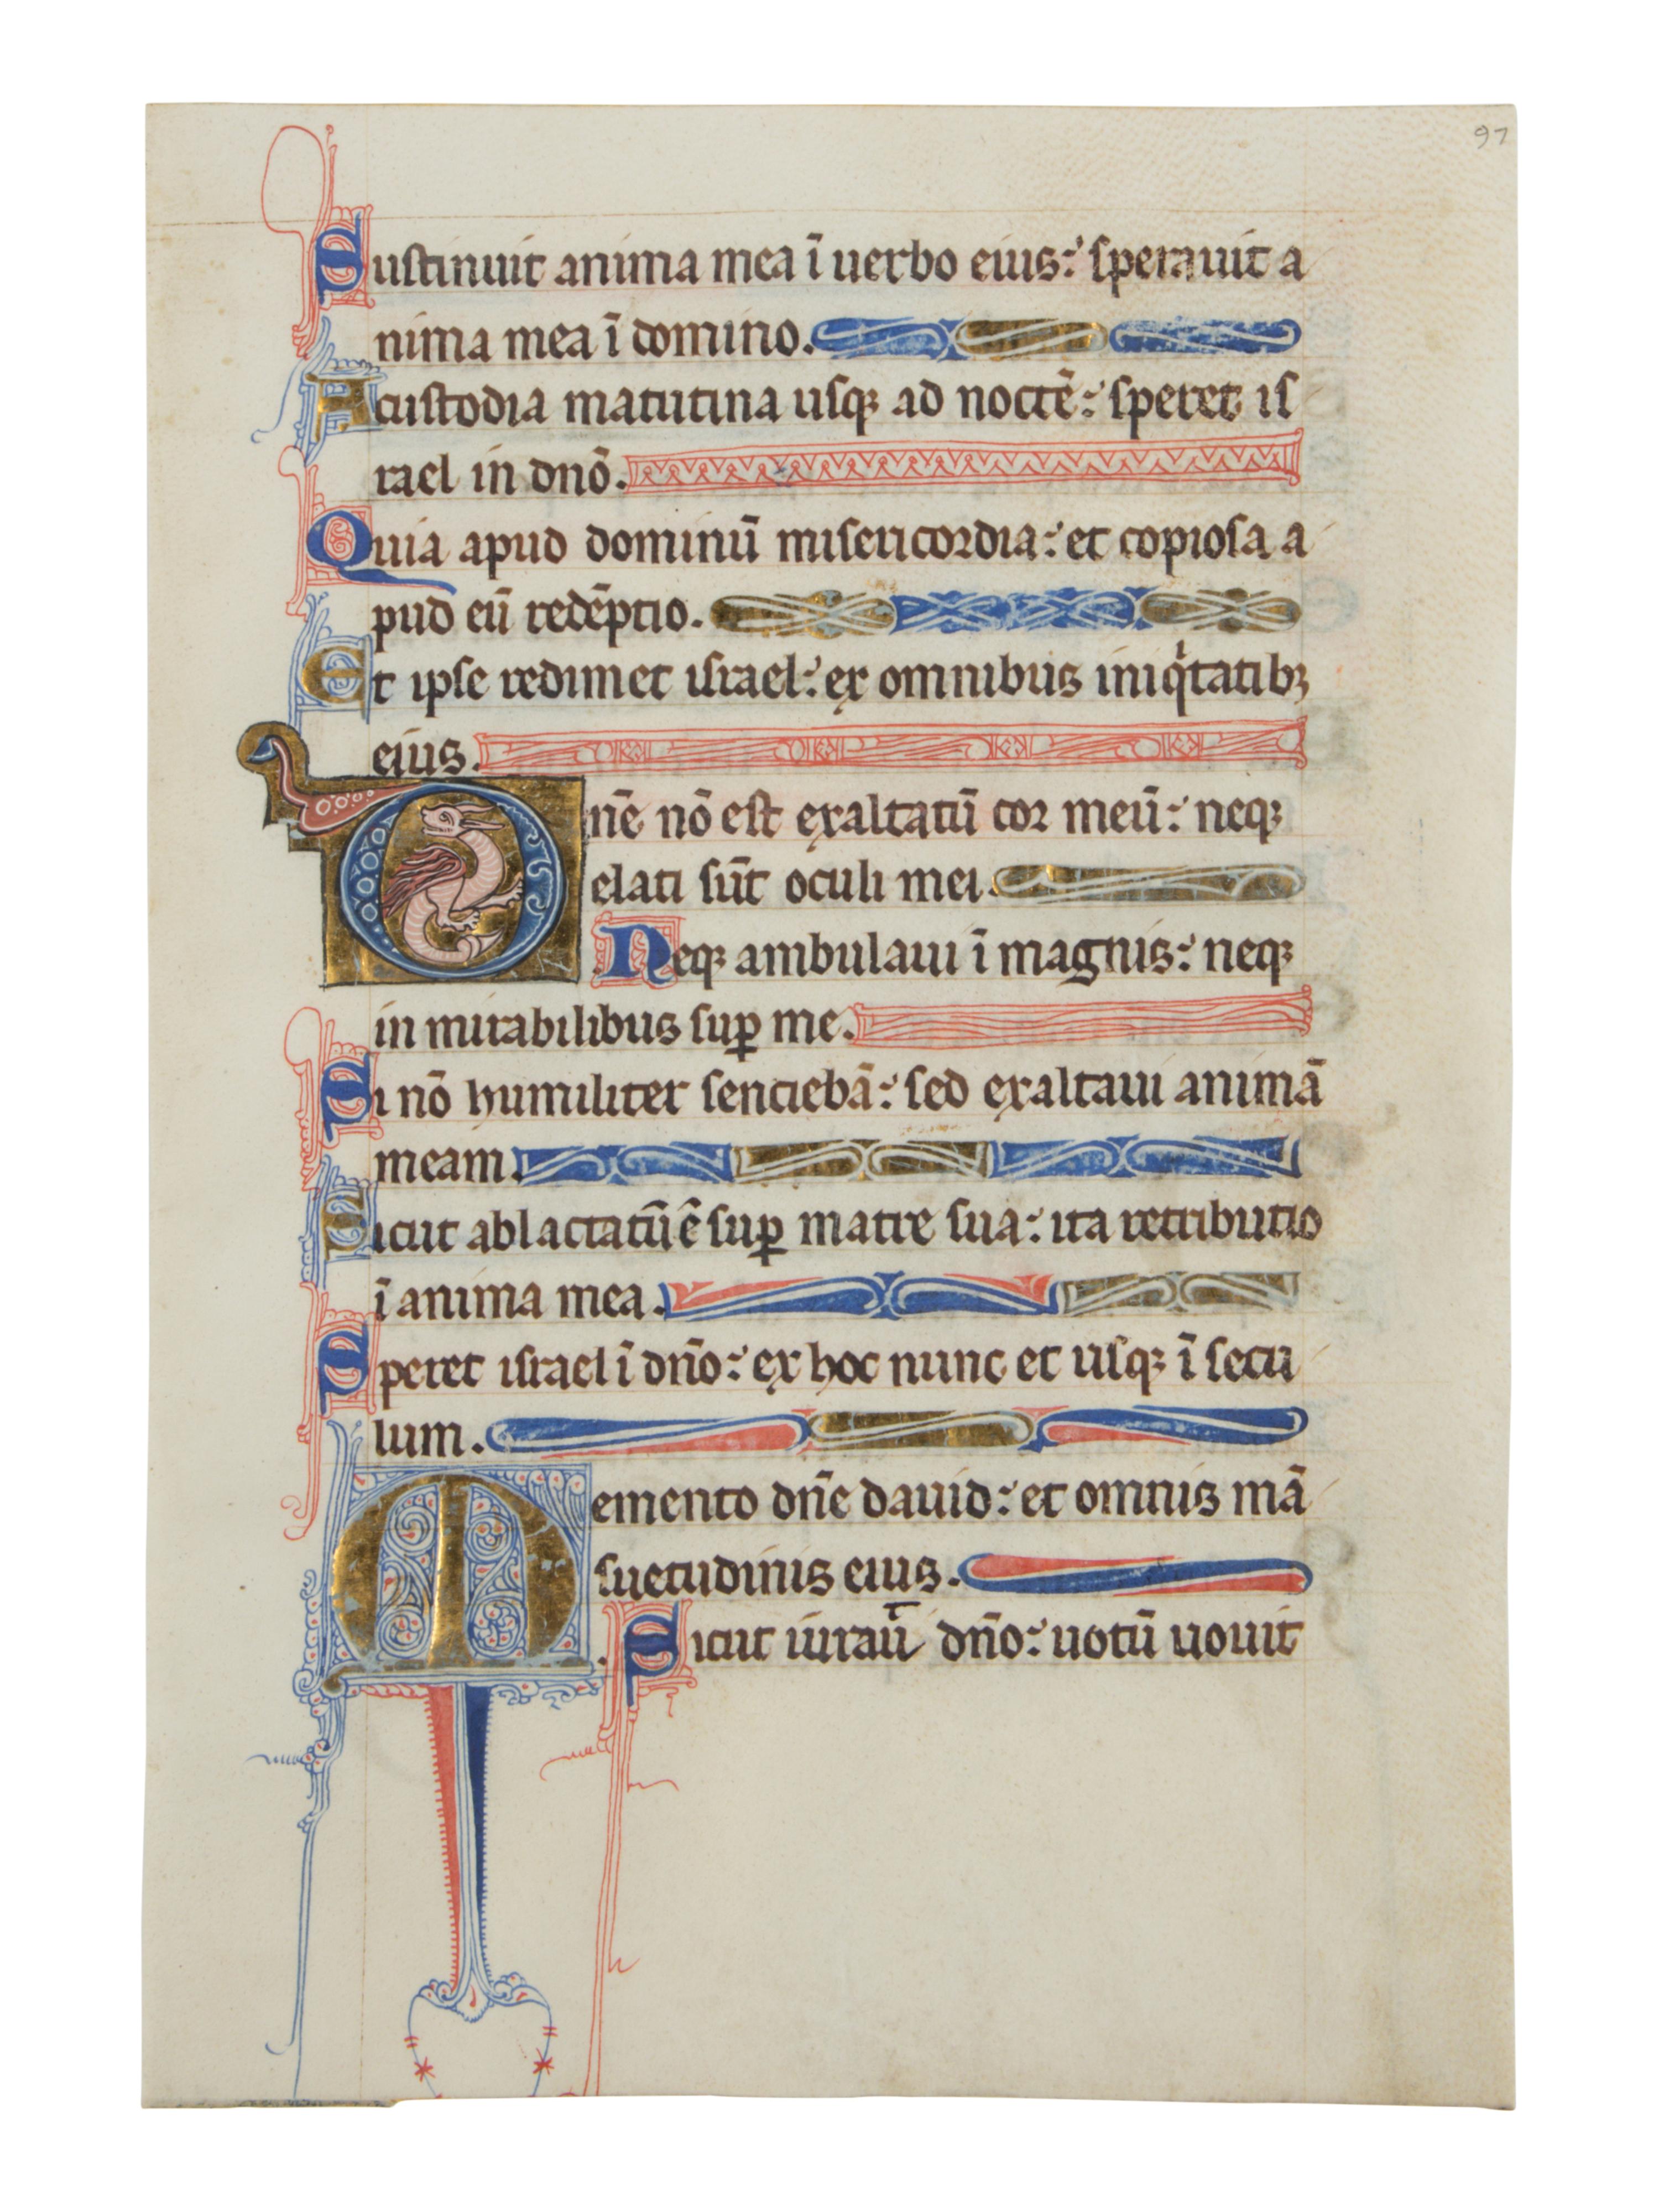 97
Sustinuit anima mea ī uerbo eius: sperauit a
nima mea ī domino.
A custodia matutina usqꝫ ad noctē: speret is
rael in dnō.
Quia apud dominū misericordia: et copiosa a
pud eū redēptio.
Et ipse redimet israel: ex omnibus iniqͥtatibꝫ
eius.
Dnē nō est exaltatū cor meū: neqꝫ
elati sūt oculi mei.
Neqꝫ ambulaui ī magnis: neqꝫ
in mirabilibus suꝑ me.
Si nō humiliter senciebā: sed exaltaui animā
meam.
Sicut ablactatū ē suꝑ matre sua: ita retributio
ī anima mea.
Speret israel ī dño: ex hoc nunc et usqꝫ ī secu
lum.
Memento dñe dauid: et omnis mā
suetudinis eius.
Sicut iurauit dño: uotū uouit